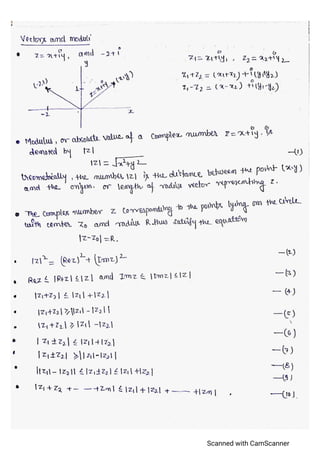 Vectors and moduli
• z = x+iy, and -2+i
y
(-2,1)
1
z=x+iy
(x,y)
-2
x
z1 = x1+iy1 , z2 = x2+iy2
z1+z2 = (x1+x2)+i(y1+y2)
z1-z2 = (x1-x2)+i(y1-y2)
• Modulus, or absolute value of a complex number z=x+iy. is
denoted by |z|
|z| = √x²+y² —(1)
Geometrically, the number |z| is the distance between the point (x,y)
and the origin. or length of radius vector representing z.
• The complex number z corresponding to the points lying on the circle
with center z0 and radius R thus satisfy the equation
|z-z0|=R.
• |z|² = (Rez)²+(Imz)² —(2)
• Rez ≤ |Rez| ≤ |z| and Imz ≤ |Imz| ≤ |z| —(3)
• |z1+z2| ≤ |z1|+|z2| —(4)
• |z1+z2| ≥ ||z1|-|z2|| —(5)
• |z1+z2| ≥ |z1|-|z2| —(6)
• |z1±z2| ≤ |z1|+|z2| —(7)
• |z1±z2| ≥ ||z1|-|z2|| —(8)
• ||z1|-|z2|| ≤ |z1±z2| ≤ |z1|+|z2| —(9)
• |z1+z2+--+zn| ≤ |z1|+|z2|+---+|zn| . —(10)
Scanned with CamScanner